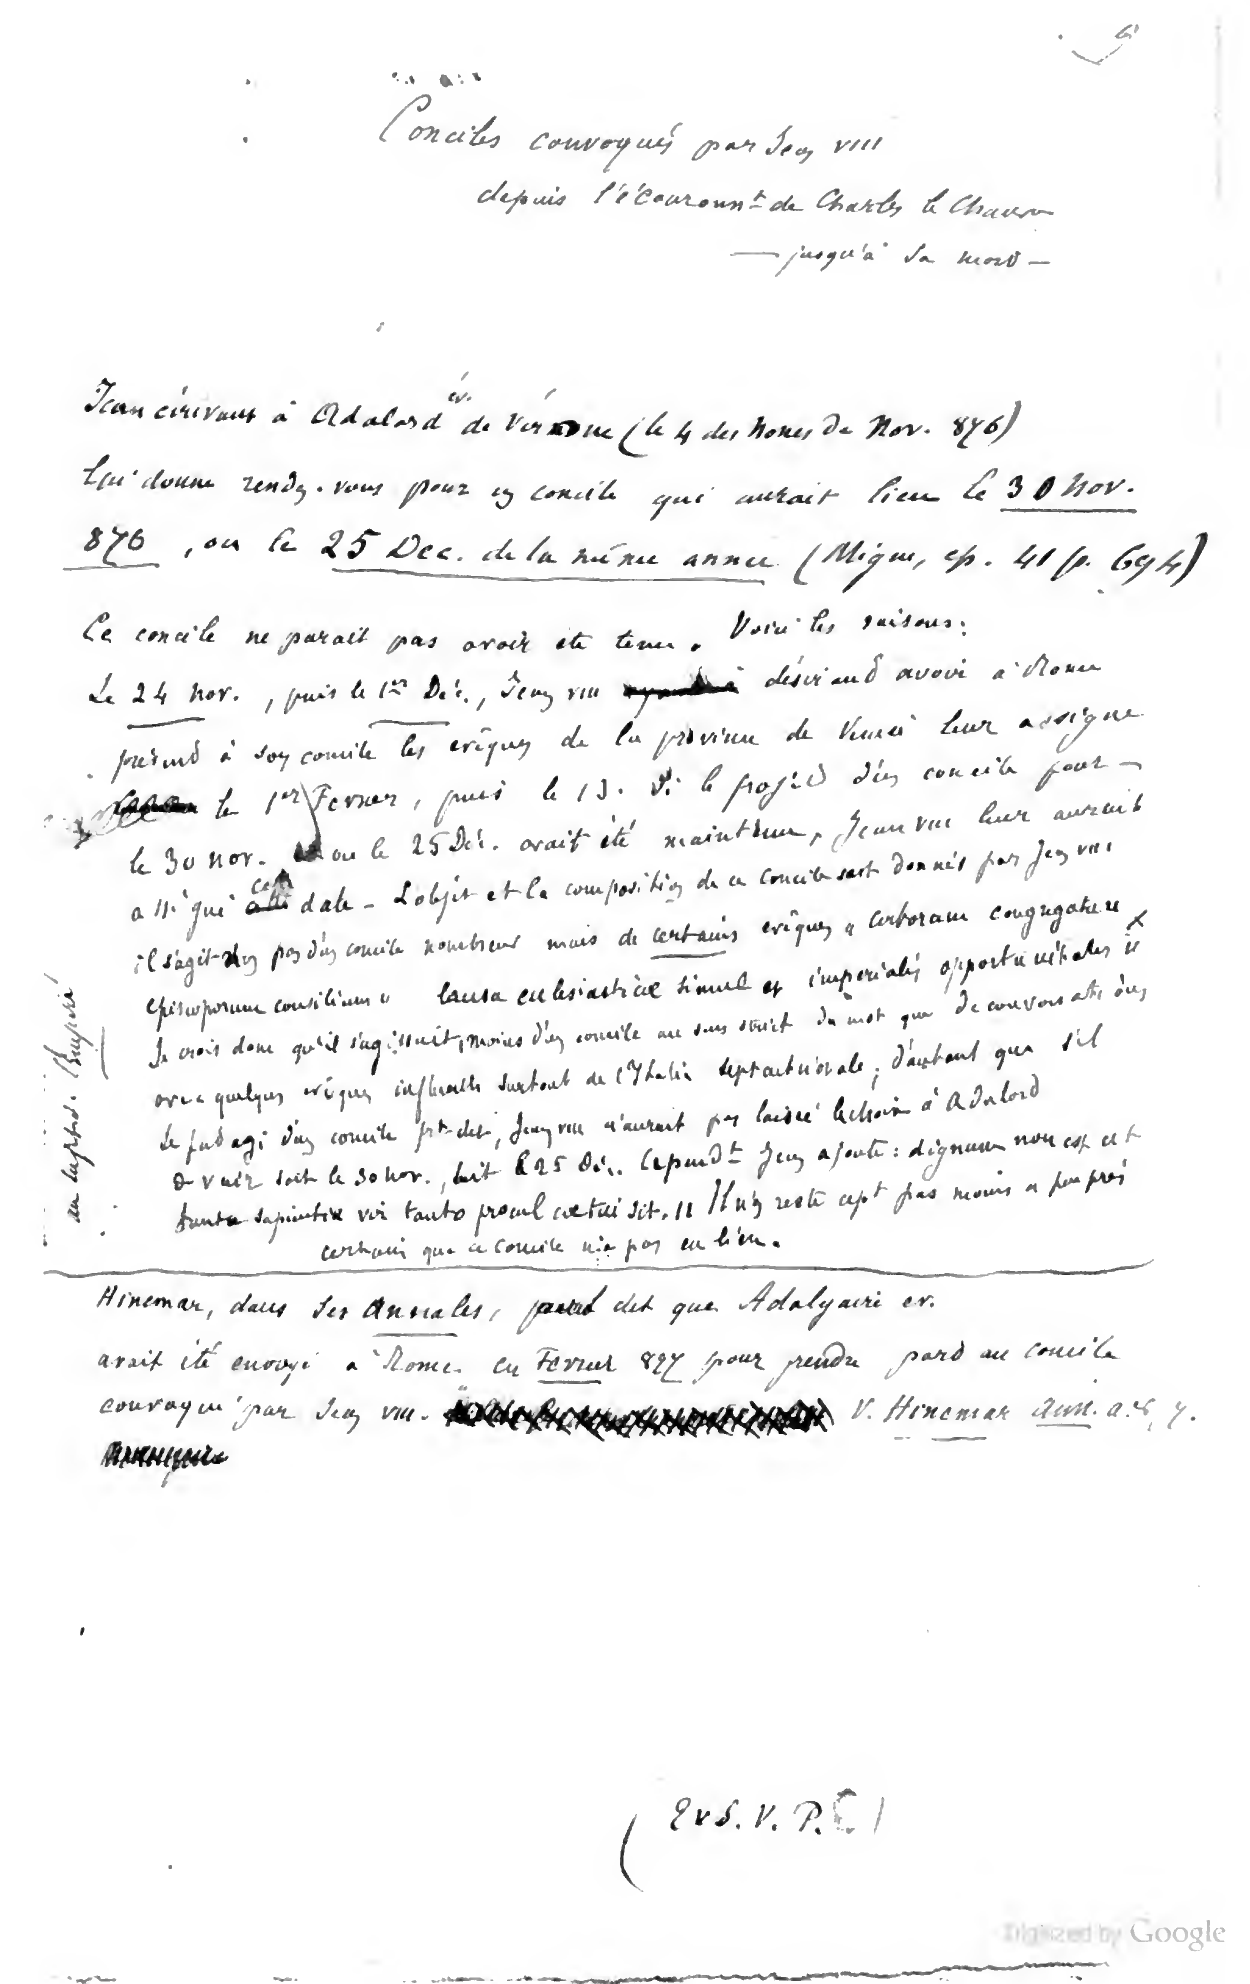 Conciles convoqués par Jean VIII
depuis le couronnt de Charles le Chauve
— jusqu'à sa mort —
Jean écrivant à Adalard év. de Vérone (le 4 des Nones de Nov. 876)
lui donne rendez-vous pour un concile qui aurait lieu le 30 Nov.
876, ou le 25 Dec. de la même année (Migne, ep. 41 p. 694)
Ce concile ne parait pas avoir été tenu. Voici les raisons:
Le 24 Nov., puis le 1er Déc., Jean VIII désirant avoir à Rome
présent à son concile les évêques de la province de Venise leur assigne
le 1er Fevrier, puis le 13. Si le projet d'un concile pour
le 30 Nov. ou le 25 Déc. avait été maintenu, Jean VIII leur aurait
assigné cette date - L'objet et la composition de ce concile sont donnés par Jean VIII
il s'agit pas d'un concile nombreux mais de certains évêques " certorum congregature
episcoporum consilium " causa ecclesiasticae simul et imperialis opportunitates
Je crois donc qu'il s'agissait, moins d'un concile au sens strict du mot que de conversations
avec quelques évêques influents surtout de l'Italie septentrionale; d'autant que s'il
se fut agi d'un concile prt dit, Jean VIII n'aurait pas laissé le choix à Adalard
de venir soit le 30 Nov., soit le 25 Déc. Cependt Jean ajoute: dignum non est ut
tantae sapientiae vir tanto procul coetui sit. " Il n'en reste cept pas moins à peu près
certain que ce concile n'a pas eu lieu.
Hincmar, dans ses Annales, dit que Adalgaire ev.
avait été envoyé à Rome en Fevrier 877 pour prendre part au concile
convoqué par Jean VIII. V. Hincmar Ann. a.
S. V. P.
Digitized by Google